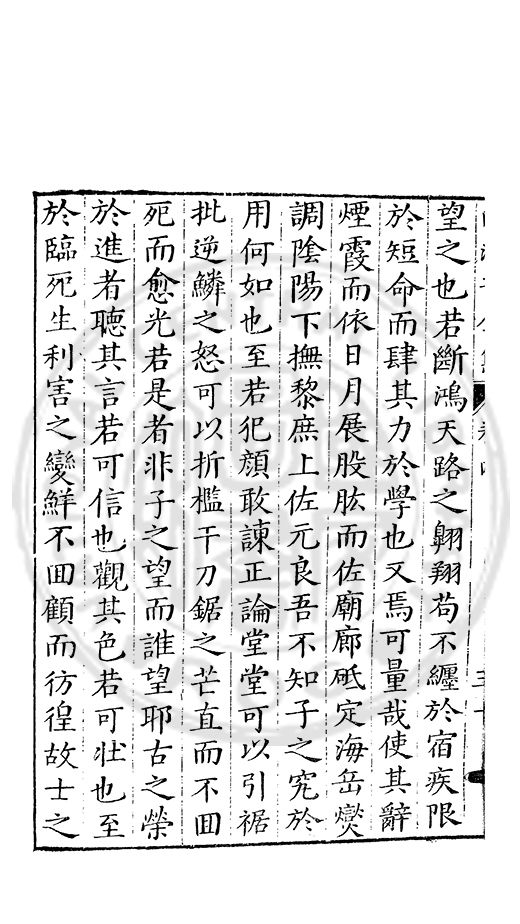 望之也若斷鴻天路之翱翔苟不纏於宿疾限
於短命而肆其力於學也又焉可量哉使其辭
煙霞而依日月展股肱而佐廟廊砥定海岳燮
調陰陽下撫黎庶上佐元良吾不知子之究於
用何如也至若犯顔敢諫正論堂堂可以引裾
批逆鱗之怒可以折檻干刀鋸之芒直而不囬
死而愈光若是者非子之望而誰望耶古之榮
於進者聽其言若可信也觀其色若可壯也至
於臨死生利害之變鮮不囬顧而彷徨故士之